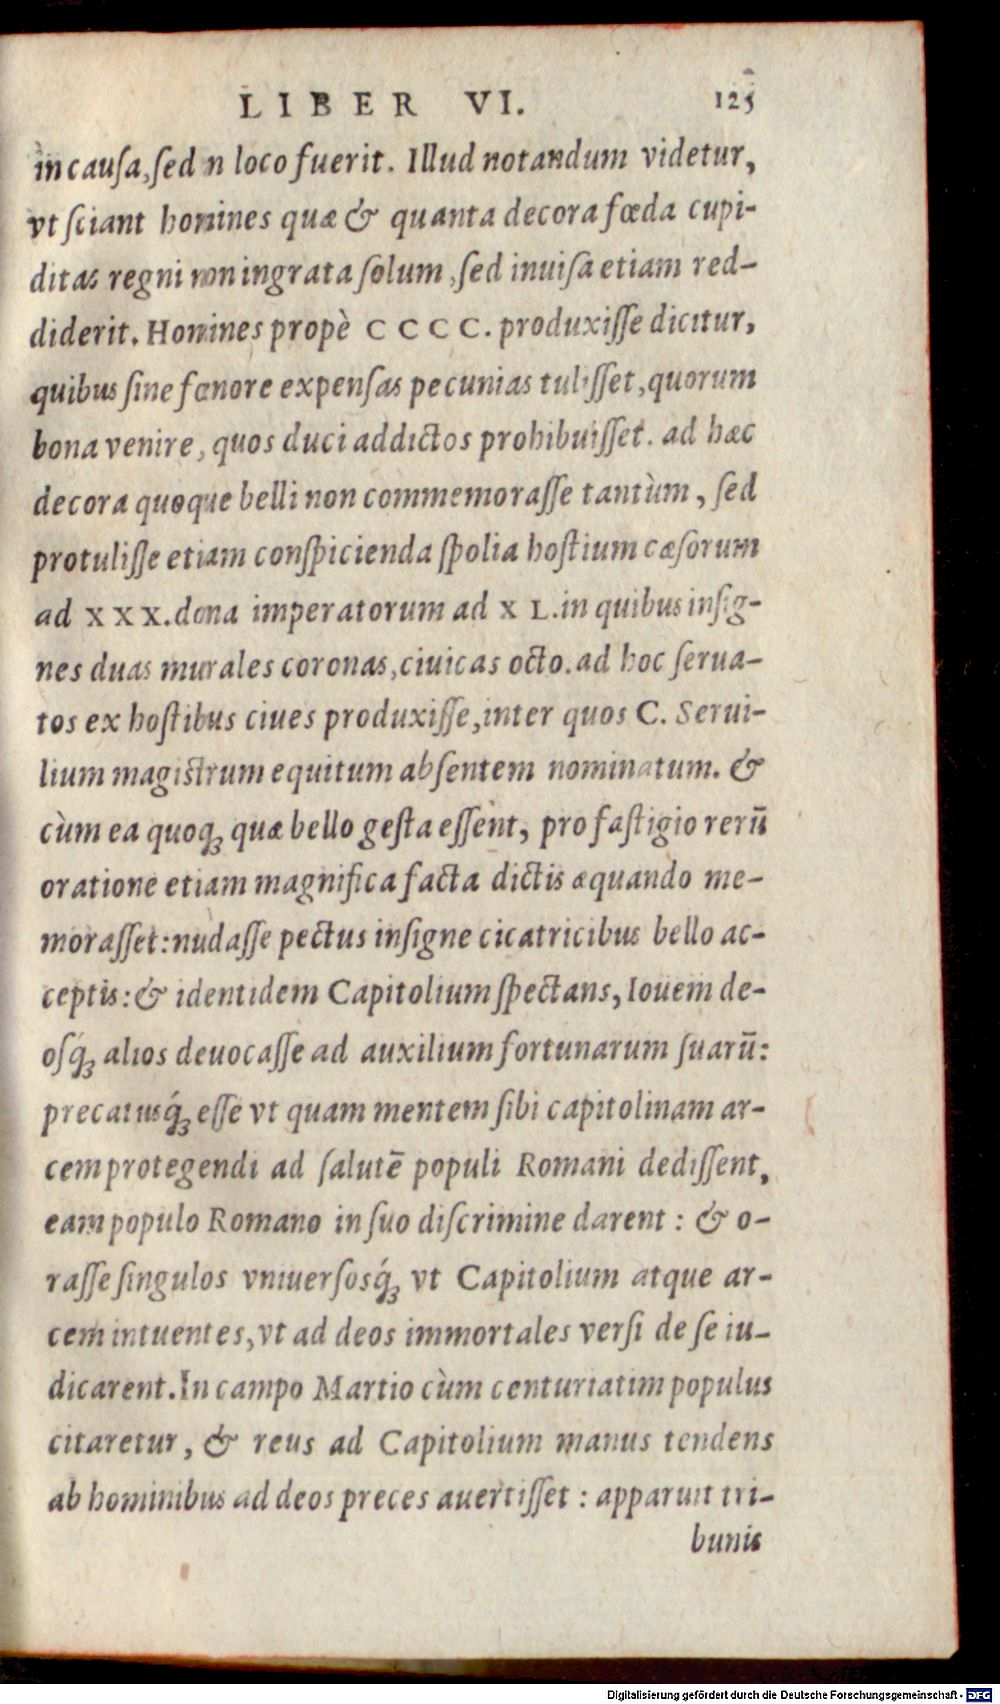 LIBER VI. 125
in causa, sed n loco fuerit. Illud notandum videtur,
vt sciant homines quæ & quanta decora fœda cupi-
ditas regni non ingrata solum, sed inuisa etiam red-
diderit. Homines propè CCCC. produxisse dicitur,
quibus sine fœnore expensas pecunias tulisset, quorum
bona venire, quos duci addictos prohibuisset. ad hæc
decora quoque belli non commemorasse tantùm, sed
protulisse etiam conspicienda spolia hostium cæsorum
ad XXX. dona imperatorum ad XL. in quibus insig-
nes duas murales coronas, ciuicas octo. ad hoc serua-
tos ex hostibus ciues produxisse, inter quos C. Serui-
lium magistrum equitum absentem nominatum. &
cùm ea quoq; quæ bello gesta essent, pro fastigio rerū
oratione etiam magnifica facta dictis æquando me-
morasset: nudasse pectus insigne cicatricibus bello ac-
ceptis: & identidem Capitolium spectans, Iouem de-
osq́; alios deuocasse ad auxilium fortunarum suarū:
precatusq́; esse vt quam mentem sibi capitolinam ar-
cem protegendi ad salutē populi Romani dedissent,
eam populo Romano in suo discrimine darent: & o-
rasse singulos vniuersosq́; vt Capitolium atque ar-
cem intuentes, vt ad deos immortales versi de se iu-
dicarent. In campo Martio cùm centuriatim populus
citaretur, & reus ad Capitolium manus tendens
ab hominibus ad deos preces auertisset: apparuit tri-
bunis
Digitalisierung gefördert durch die Deutsche Forschungsgemeinschaft - DFG